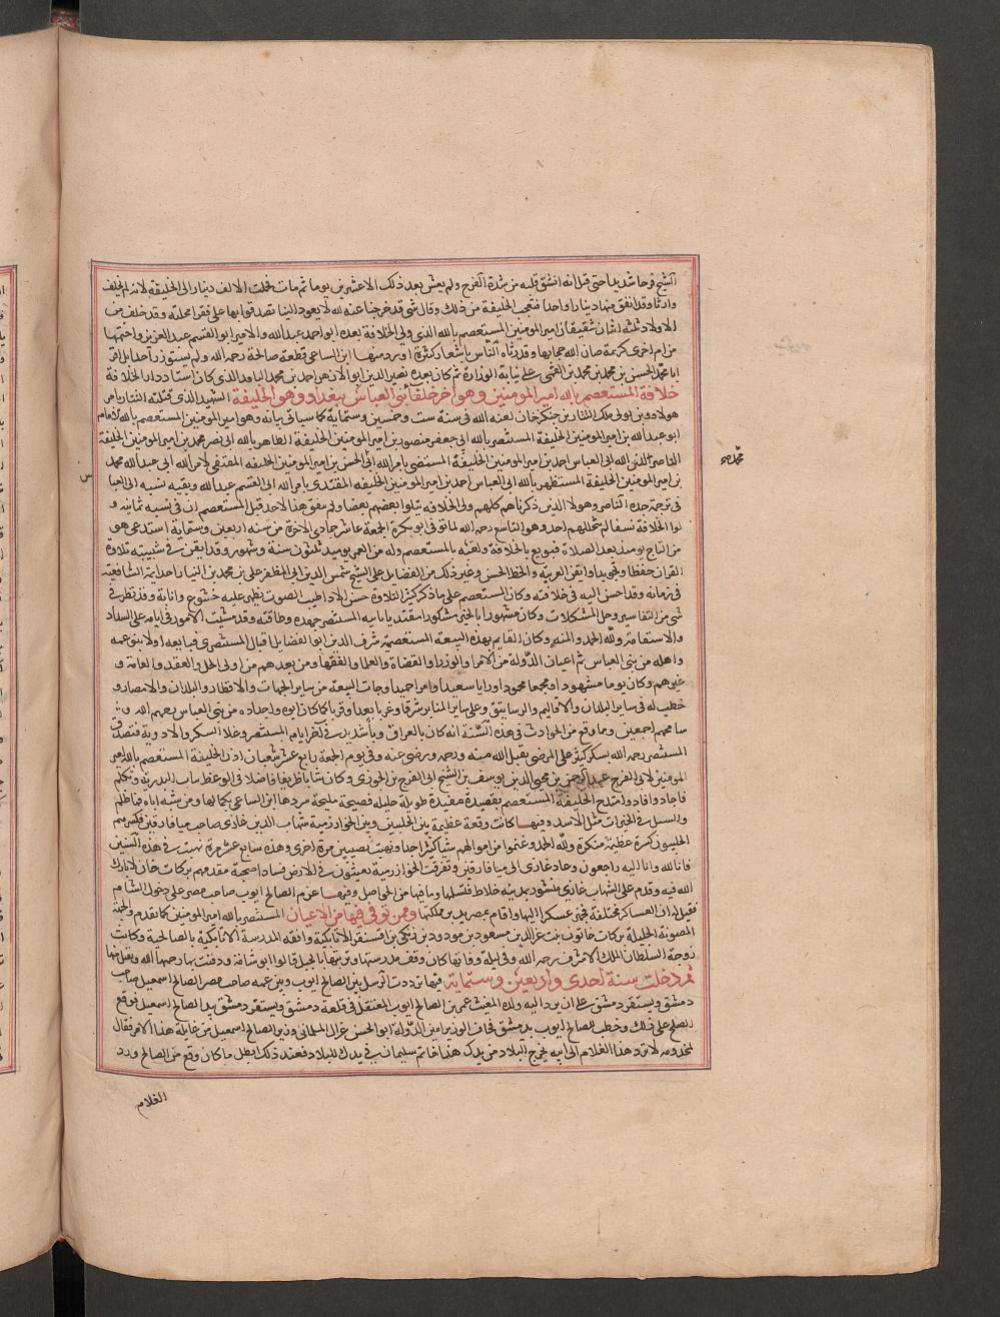 الشيخ فرحا شديدا حتى قيل انه انشق قلبه من شدة الفرح ولم يعش بعد ذلك الا عشرين يوما ثم مات فحملت الالف دينار الى الخليفة لانه لم يخلف
وارثا وقد انفق منها دينارا واحدا فتعجب الخليفة من ذلك وقال شي قد خرجنا عنه لله لا يعود الينا تصدقوا بها على فقرا محلته وقد خلف من
الاولاد ثلثة اثنان شقيقان امير المومنين المستعصم بالله الذي ولي الخلافة بعده ابو احمد عبد الله والامير ابو القسم عبد العزيز واختهما
من ام اخرى كريمة صان الله حجابها وقد رثاه الناس باشعار كثيرة اورد منها ابن الساعي قطعة صالحة رحمه الله ولم يستوزر احدا بل اقر
ابا محمد الحسن بن محمد بن محمد بن القمي على نيابة الوزارة ثم كان بعده نصير الدين ابو الازهر احمد بن محمد الناقد الذي كان استاد دار الخلافة
خلافة المستعصم بالله امير المومنين وهو اخر خلفا بني العباس ببغداد وهو الخليفة الشهيد الذي قتلته التتار بامر
هولاوو بن تولي ملك التتار بن جنكزخان لعنه الله في سنة ست وخمسين وستماية كما سياتي بيانه وهو امير المومنين المستعصم بالله الامام
ابو عبد الله بن امير المومنين الخليفة المستنصر بالله ابي جعفر منصور بن امير المومنين الخليفة الظاهر بالله ابي نصر محمد بن امير المومنين الخليفة
الناصر لدين الله ابي العباس احمد بن امير المومنين الخليفة المستضي بامر الله ابي الحسن بن امير المومنين الخليفه المقتفي لامر الله ابي عبد الله محمد
محمد صح
بن امير المومنين الخليفة المستظهر بالله ابي العباس احمد بن امير المومنين الخليفه المقتدي بامر الله ابي القسم عبد الله وبقيه نسبه الى العبا
س
في ترجمة جده الناصر وهولا الذين ذكرناهم كلهم ولي الخلافه يتلوا بعضهم بعضا ولم يتفق هذا لاحد قبل المستعصم ان في نسبه ثمانيه و
لوا الخلافة نسقا لم يتخللهم احد وهو التاسع رحمه الله لما توفي ابوه بكرة الجمعة عاشر جمادي الاخرة من سنه اربعين وستماية استدعي هو
من التاج يومئذ بعد الصلاة فبويع بالخلافة ولقب بالمستعصم وله من العمر يوميد ثلثون سنة وشهور وقد اتقن في شبيبته تلاوة
القران حفظا وتجويدا واتقن العربيه والخط الحسن وغير ذلك من الفضايل على الشيخ شمس الدين ابي المظفر علي بن محمد بن النيار احد ايمة الشافعيه
في زمانه وقد احسن اليه في خلافته وكان المستعصم على ما ذكر كثير التلاوة حسن الادا طيب الصوت يظهر عليه خشوع وانابة وقد نظر في
شي من التفاسير وحل المشكلات وكان مشهورا بالخير مشكورا مقتديا بابيه المستنصر جهده وطاقته وقد مشيت الامور في ايامه على السداد
والاستقامة ولله الحمد والمنه وكان القايم بهذه البيعة المستعصمية شرف الدين ابو الفضايل اقبال المستنصري فبايعه اولا بنو عمه
واهله من بني العباس ثم اعيان الدولة من الامرا والوزرا والقضاة والعلما والفقها ومن بعدهم من اولى الحل والعقد والعامة و
غيرهم وكان يوما مشهودا ومجمعا محمودا ورايا سعيدا وامرا حميدا وجات البيعة من ساير الجهات والاقطار والبلدان والامصار و
خطب له في ساير البلدان والاقاليم والرساتيق وعلى ساير المنابر شرقا وغربا بعدا وقربا كما كان ابوه واجداده من بني العباس رحمهم الله و
سامحهم اجمعين ومما وقع من الحوادث في هذه السنة انه كان بالعراق وبا شديد في اخر ايام المستنصر وغلا السكر والادوية فتصدق
المستنصر رحمه الله بسكر كثير على المرضى تقبل الله منه ورحمه ورضي عنه وفي يوم الجمعة رابع عشر شعبان اذن الخليفة المستعصم بالله امير
المومنين لابي الفرج عبد الرحمن بن محيي الدين يوسف بن الشيخ ابي الفرج بن الجوزي وكان شابا ظريفا فاضلا في الوعظ بباب البدرية وتكلم
فاجاد وافاد وامتدح الخليفة المستعصم بقصيدة مفيدة طويلة جليله فصيحة مليحة سردها ابن الساعي بكمالها ومن شبه اباه فما ظلم
والشبل في الخبرات مثل الاسد وفيها كانت وقعة عظيمة بين الحلبيين وبين الخوارزمية ومع الخوارزمية شهاب الدين غازي صاحب ميافارقين فكسرهم
الحلبيون كسرة عظيمة منكرة ولله الحمد وغنموا من اموالهم شيا كثيرا جدا ونهبت نصيبين مرة اخرى وهذه سابع عشر مرة نهبت في هذه السنين
فانا لله وانا اليه راجعون وعاد غازي الى ميافارقين وتفرقت الخوارزمية يعيثون في الارض فسادا صحبة مقدمهم بركات خان لا بارك
الله فيه وقدم على الشهاب غازي منشور بمدينه خلاط فتسلمها وما فيها من الحواصل وفيها عزم الصالح ايوب صاحب مصر على دخول الشام
فقيل له ان العساكر مختلفة فجهز عسكرا اليها واقام بمصر يدبر مملكتها وممن توفي فيها من الاعيان المستنصر بالله امير المومنين كما تقدم والجهة
المصونة الجليلة بركات خاتون بنت عز الدين مسعود بن مودود بن زنكي بن اقسنقر الاتابكية واقفة المدرسة الاتابكية بالصالحية وكانت
زوجة السلطان الملك الاشرف رحمه الله وفي ليلة وفاتها كان وقف مدرستها وتربتها بالجبل قاله ابو شامة ودفنت بها رحمها الله وتقبل منها
ثم دخلت سنة احدى واربعين وستماية فيها ترددت الرسل بين الصالح ايوب وبين عمه صاحب مصر الصالح اسمعيل صاحب
دمشق ويستقر دمشق على ان يرد اليه ولده المغيث عمر بن الصالح ايوب المعتقل في قلعة دمشق ويستقر دمشق بيد الصالح اسمعيل فوقع
الصلح على ذلك وخطب للصالح ايوب بدمشق فخاف الوزير امين الدولة ابو الحسن غزال المسلماني وزير الصالح اسمعيل من غايلة هذا الامر فقال
لمخدومه لا ترد هذا الغلام الى ابيه يخرج البلاد من يدك هذا خاتم سليمان في يدك للبلاد فعند ذلك ابطل ما كان وقع من الصالح ورد
الغلام